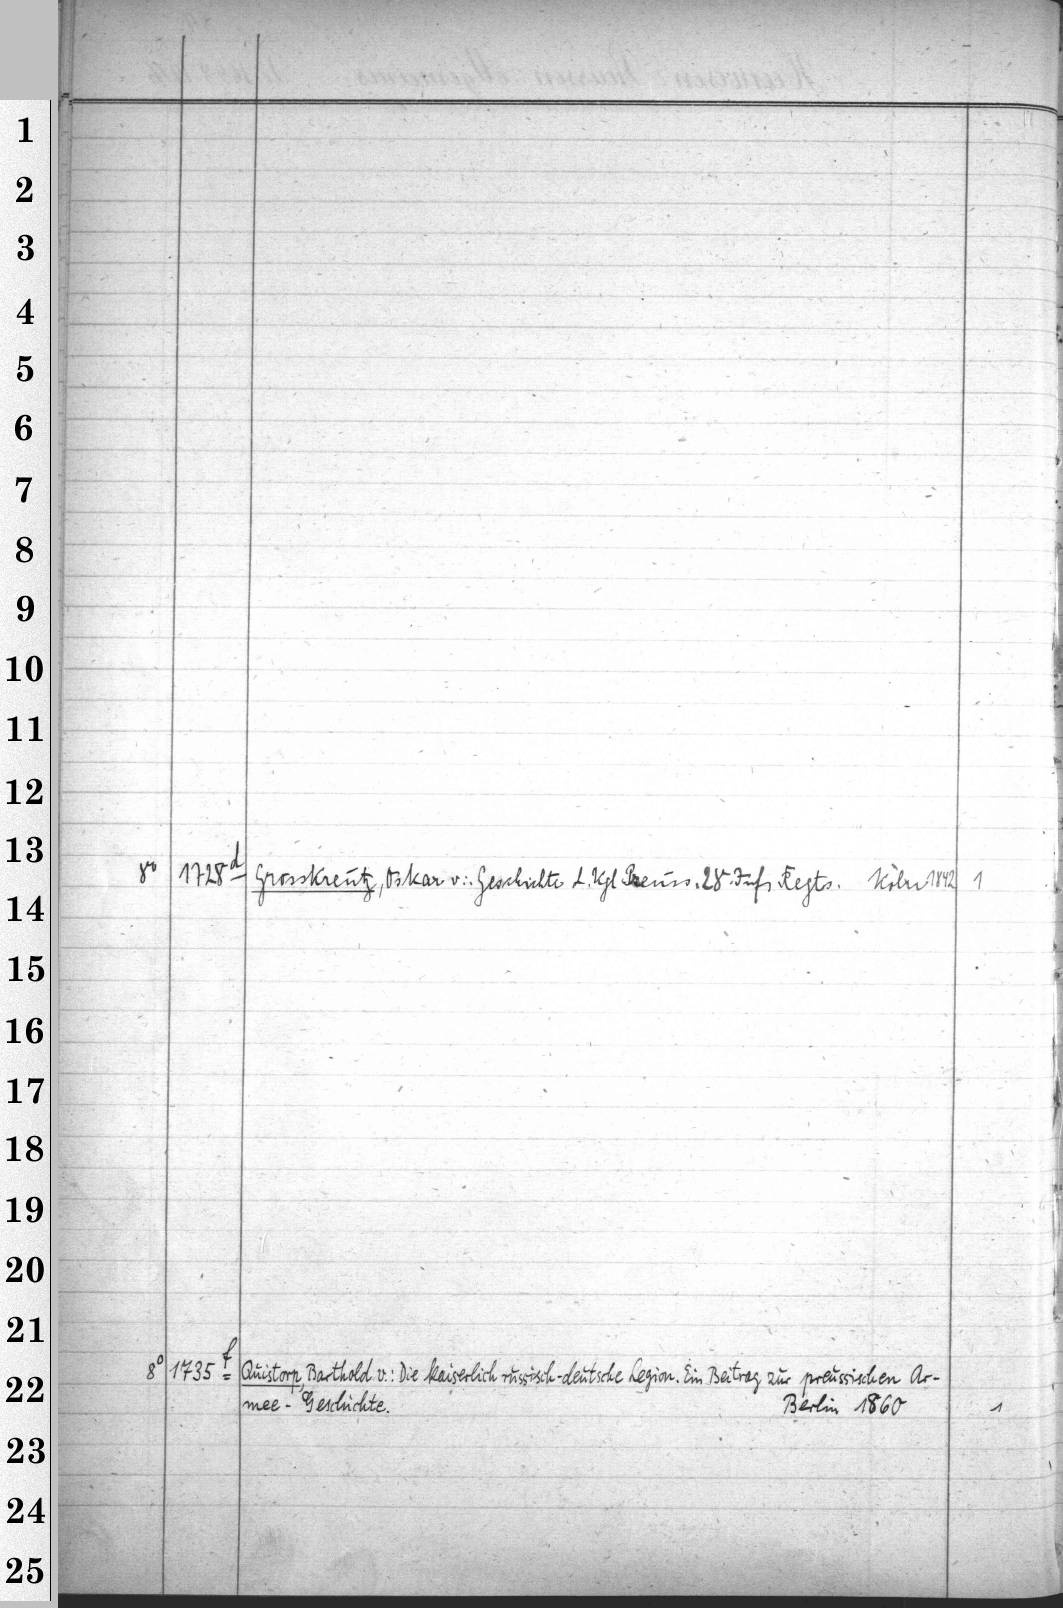 1
2
3
4
5
6
7
8
9
10
11
12
13
8° 1728 d Grosskreutz, Oskar v.: Geschichte d. Kgl Preuss. 28. Inf. Regts. Köln 1842 1
14
15
16
17
18
19
20
21
8° 1735 f Quistorp, Barthold v.: Die kaiserlich russisch-deutsche Legion. Ein Beitrag zur preussischen Ar-
22
mee-Geschichte. Berlin 1860 1
23
24
25